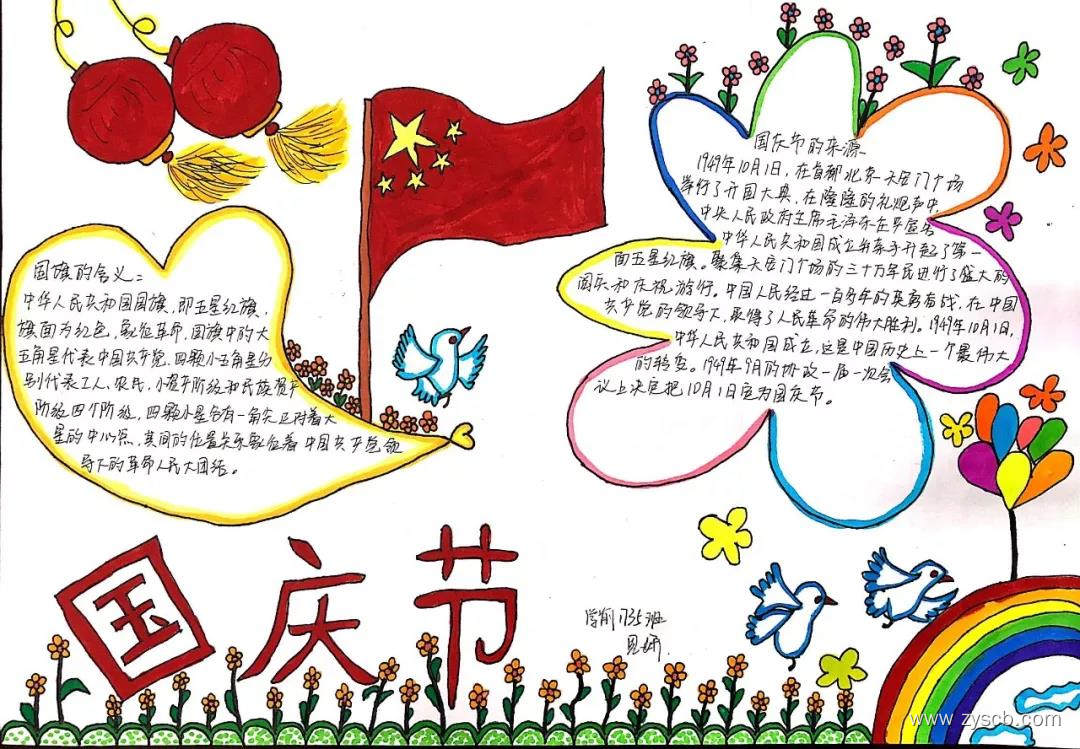 国旗的含义：
中华人民共和国国旗，即五星红旗，
旗面为红色，象征革命，国旗中的大
五角星代表中国共产党，四颗小五角星分
别代表工人、农民、小资产阶级和民族资产
阶级四个阶级，四颗小星各有一角尖正对着大
星的中心点，其间的位置关系象征着中国共产党领
导下的革命人民大团结。
国庆节的来源
1949年10月1日，在首都北京天安门广场
举行了开国大典，在隆隆的礼炮声中
中央人民政府主席毛泽东在宣告
中华人民共和国成立并亲手升起了第一
面五星红旗。聚集天安门广场的三十万军民进行了盛大的
阅兵和庆祝游行。中国人民经过一百多年的英勇奋战，在中国
共产党的领导下，取得了人民革命的伟大胜利。1949年10月1日，
中华人民共和国成立，这是中国历史上一个最伟大
的转变。1949年9月的协政一届一次会
议上决定把10月1日定为国庆节。
国庆节
学前1735班
www.zyscb.com